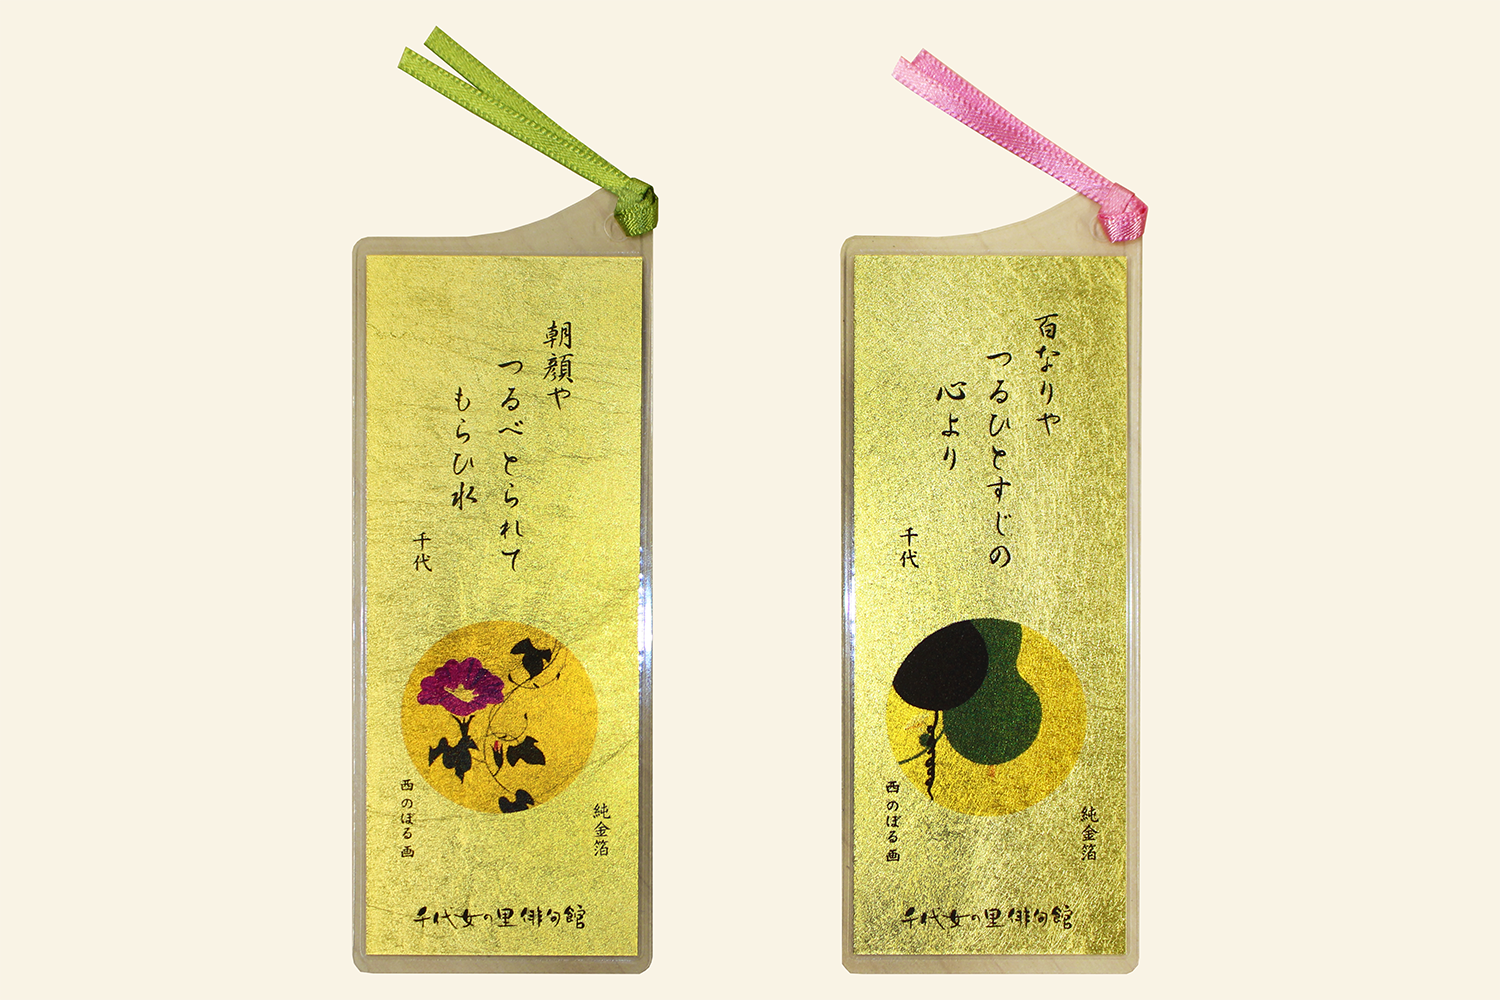 朝顔や
つるべとられて
もらひ水
千代
西のぼる画
純金箔
千代女の里俳句館
百なりや
つるひとすじの
心より
千代
西のぼる画
純金箔
千代女の里俳句館